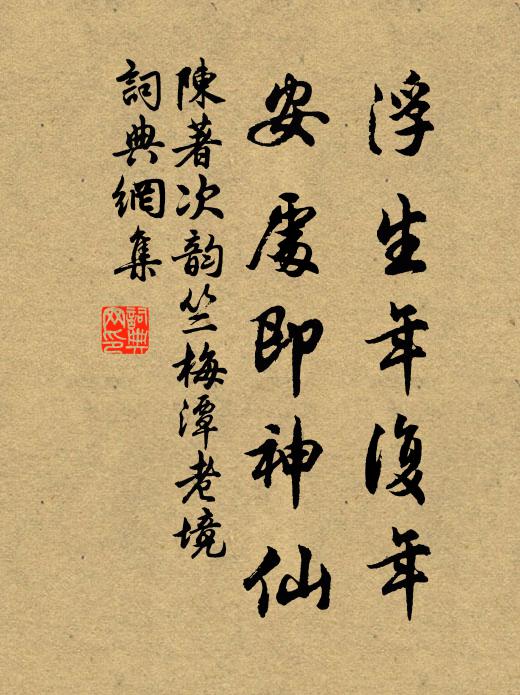 浮生年復年
安處即神仙
陳著次韵竺梅潭老境
詞典網集
詞典
网印